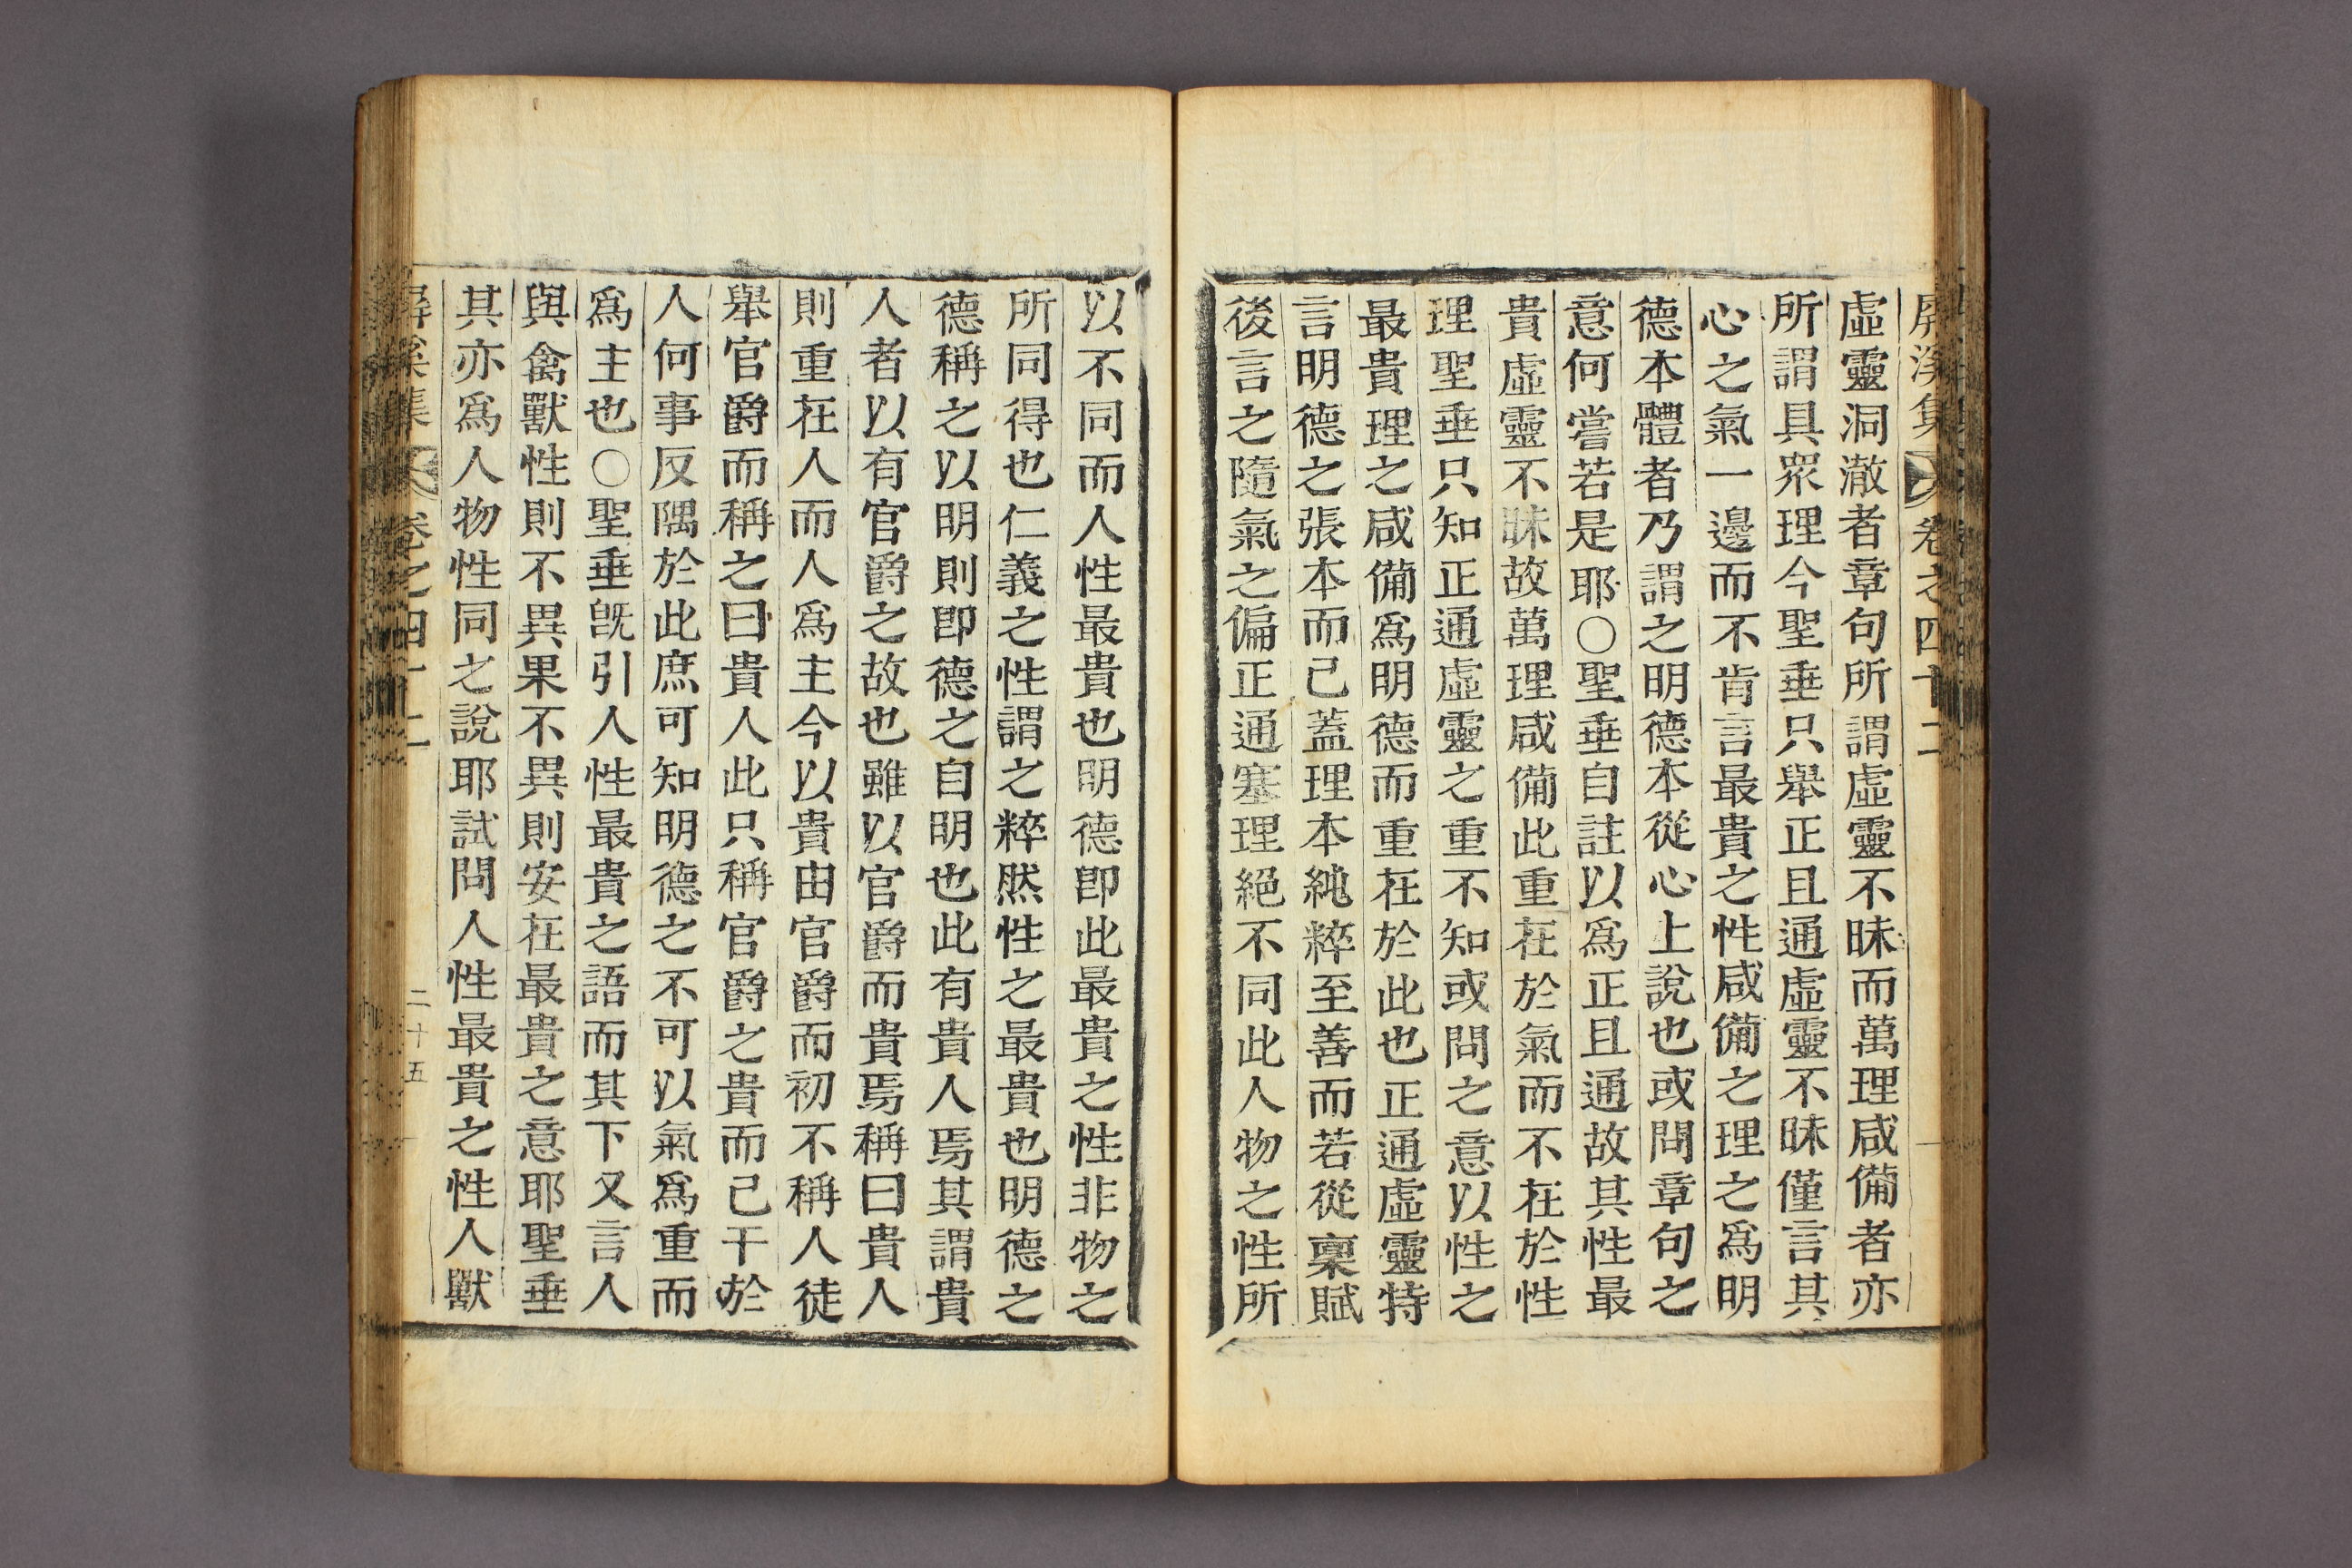 屏溪集 卷之四十二
虛靈洞澈者章句所謂虛靈不昧而萬理咸備者亦
所謂具衆理今聖垂只舉正且通虛靈不昧僅言其
心之氣一邊而不肯言最貴之性咸備之理之爲明
德本體者乃謂之明德本從心上說也或問章句之
意何嘗若是耶○聖垂自註以爲正且通故其性最
貴虛靈不昧故萬理咸備此重在於氣而不在於性
理聖垂只知正通虛靈之重不知或問之意以性之
最貴理之咸備爲明德而重在於此也正通虛靈特
言明德之張本而已蓋理本純粹至善而若從稟賦
後言之隨氣之偏正通塞理絕不同此人物之性所
以不同而人性最貴也明德卽此最貴之性非物之
所同得也仁義之性謂之粹然性之最貴也明德之
德稱之以明則卽德之自明也此有貴人焉其謂貴
人者以有官爵之故也雖以官爵而貴焉稱曰貴人
則重在人而人爲主今以貴由官爵而初不稱人徒
舉官爵而稱之曰貴人此只稱官爵之貴而已干於
人何事反隅於此庶可知明德之不可以氣爲重而
爲主也○聖垂旣引人性最貴之語而其下又言人
與禽獸性則不異果不異則安在最貴之意耶聖垂
其亦爲人物性同之說耶試問人性最貴之性人獸
屏溪集 卷之四十二 二十五